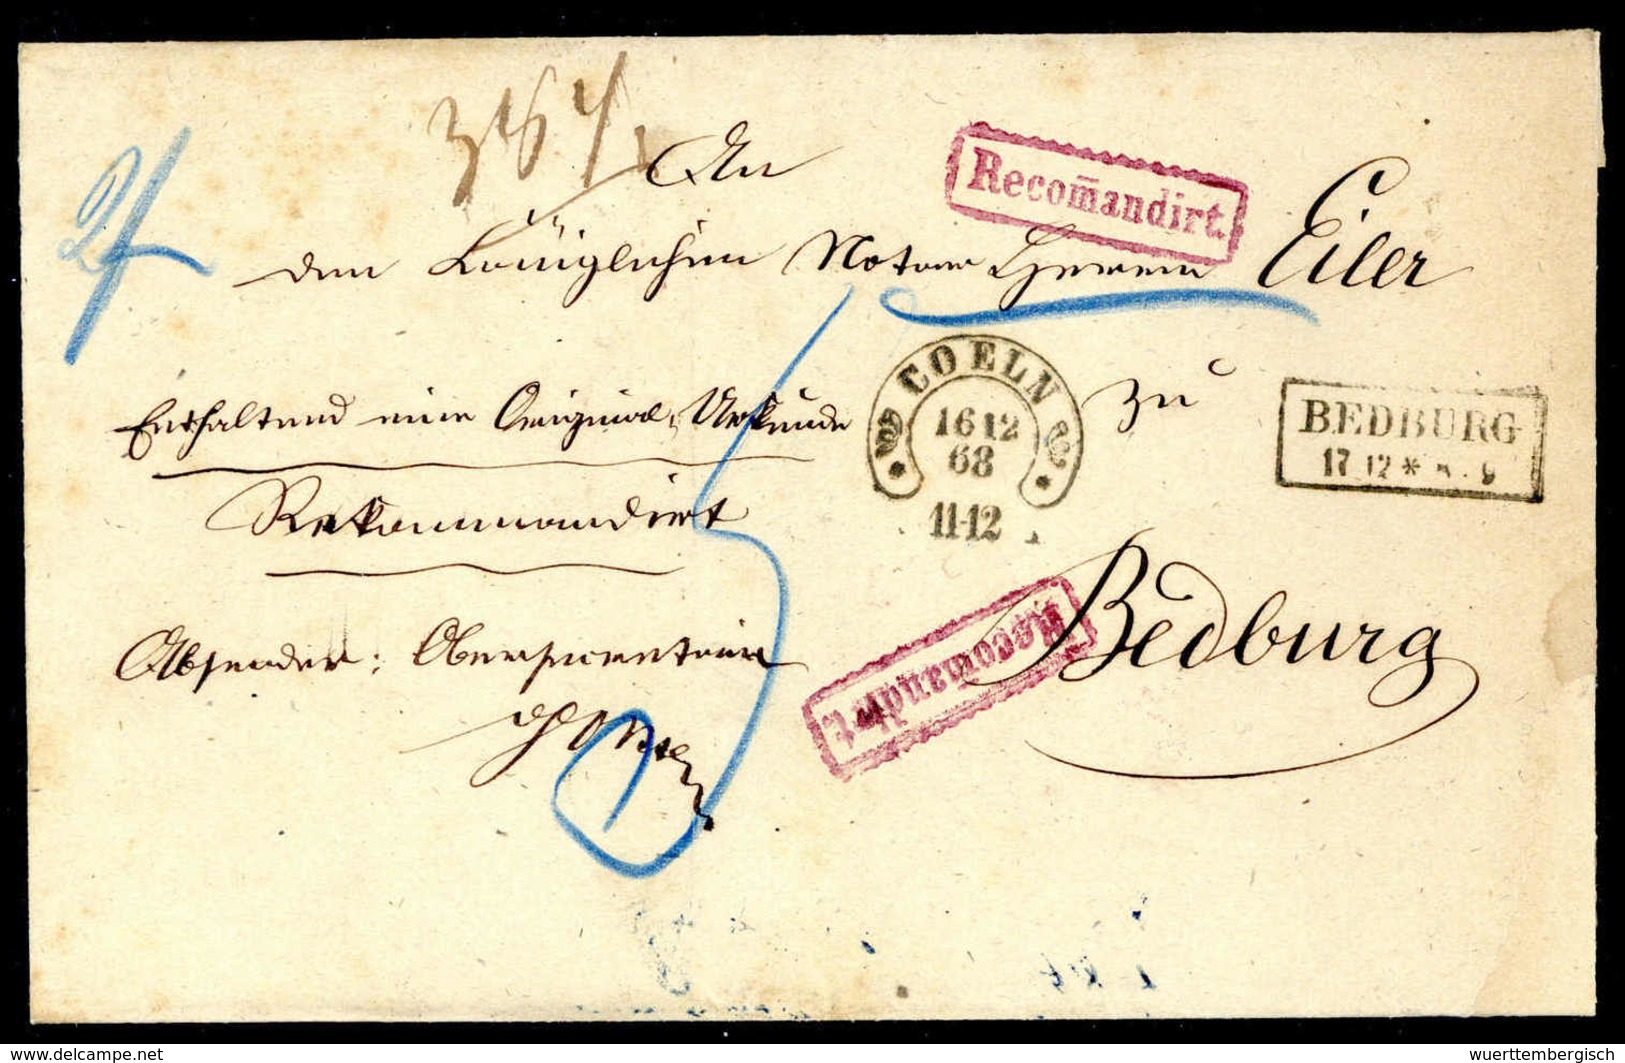 An
Recom̄andirt.
den Königlichen Notar Herrn Eiler
COELN
16 12
68
11-12
zu
BEDBURG
17 12 *
Enthaltend eine Original-Urkunde
Rekommandirt
Bedburg
Recom̄andirt.
Absender: Obersecretair
delcampe.net
wuerttembergisch